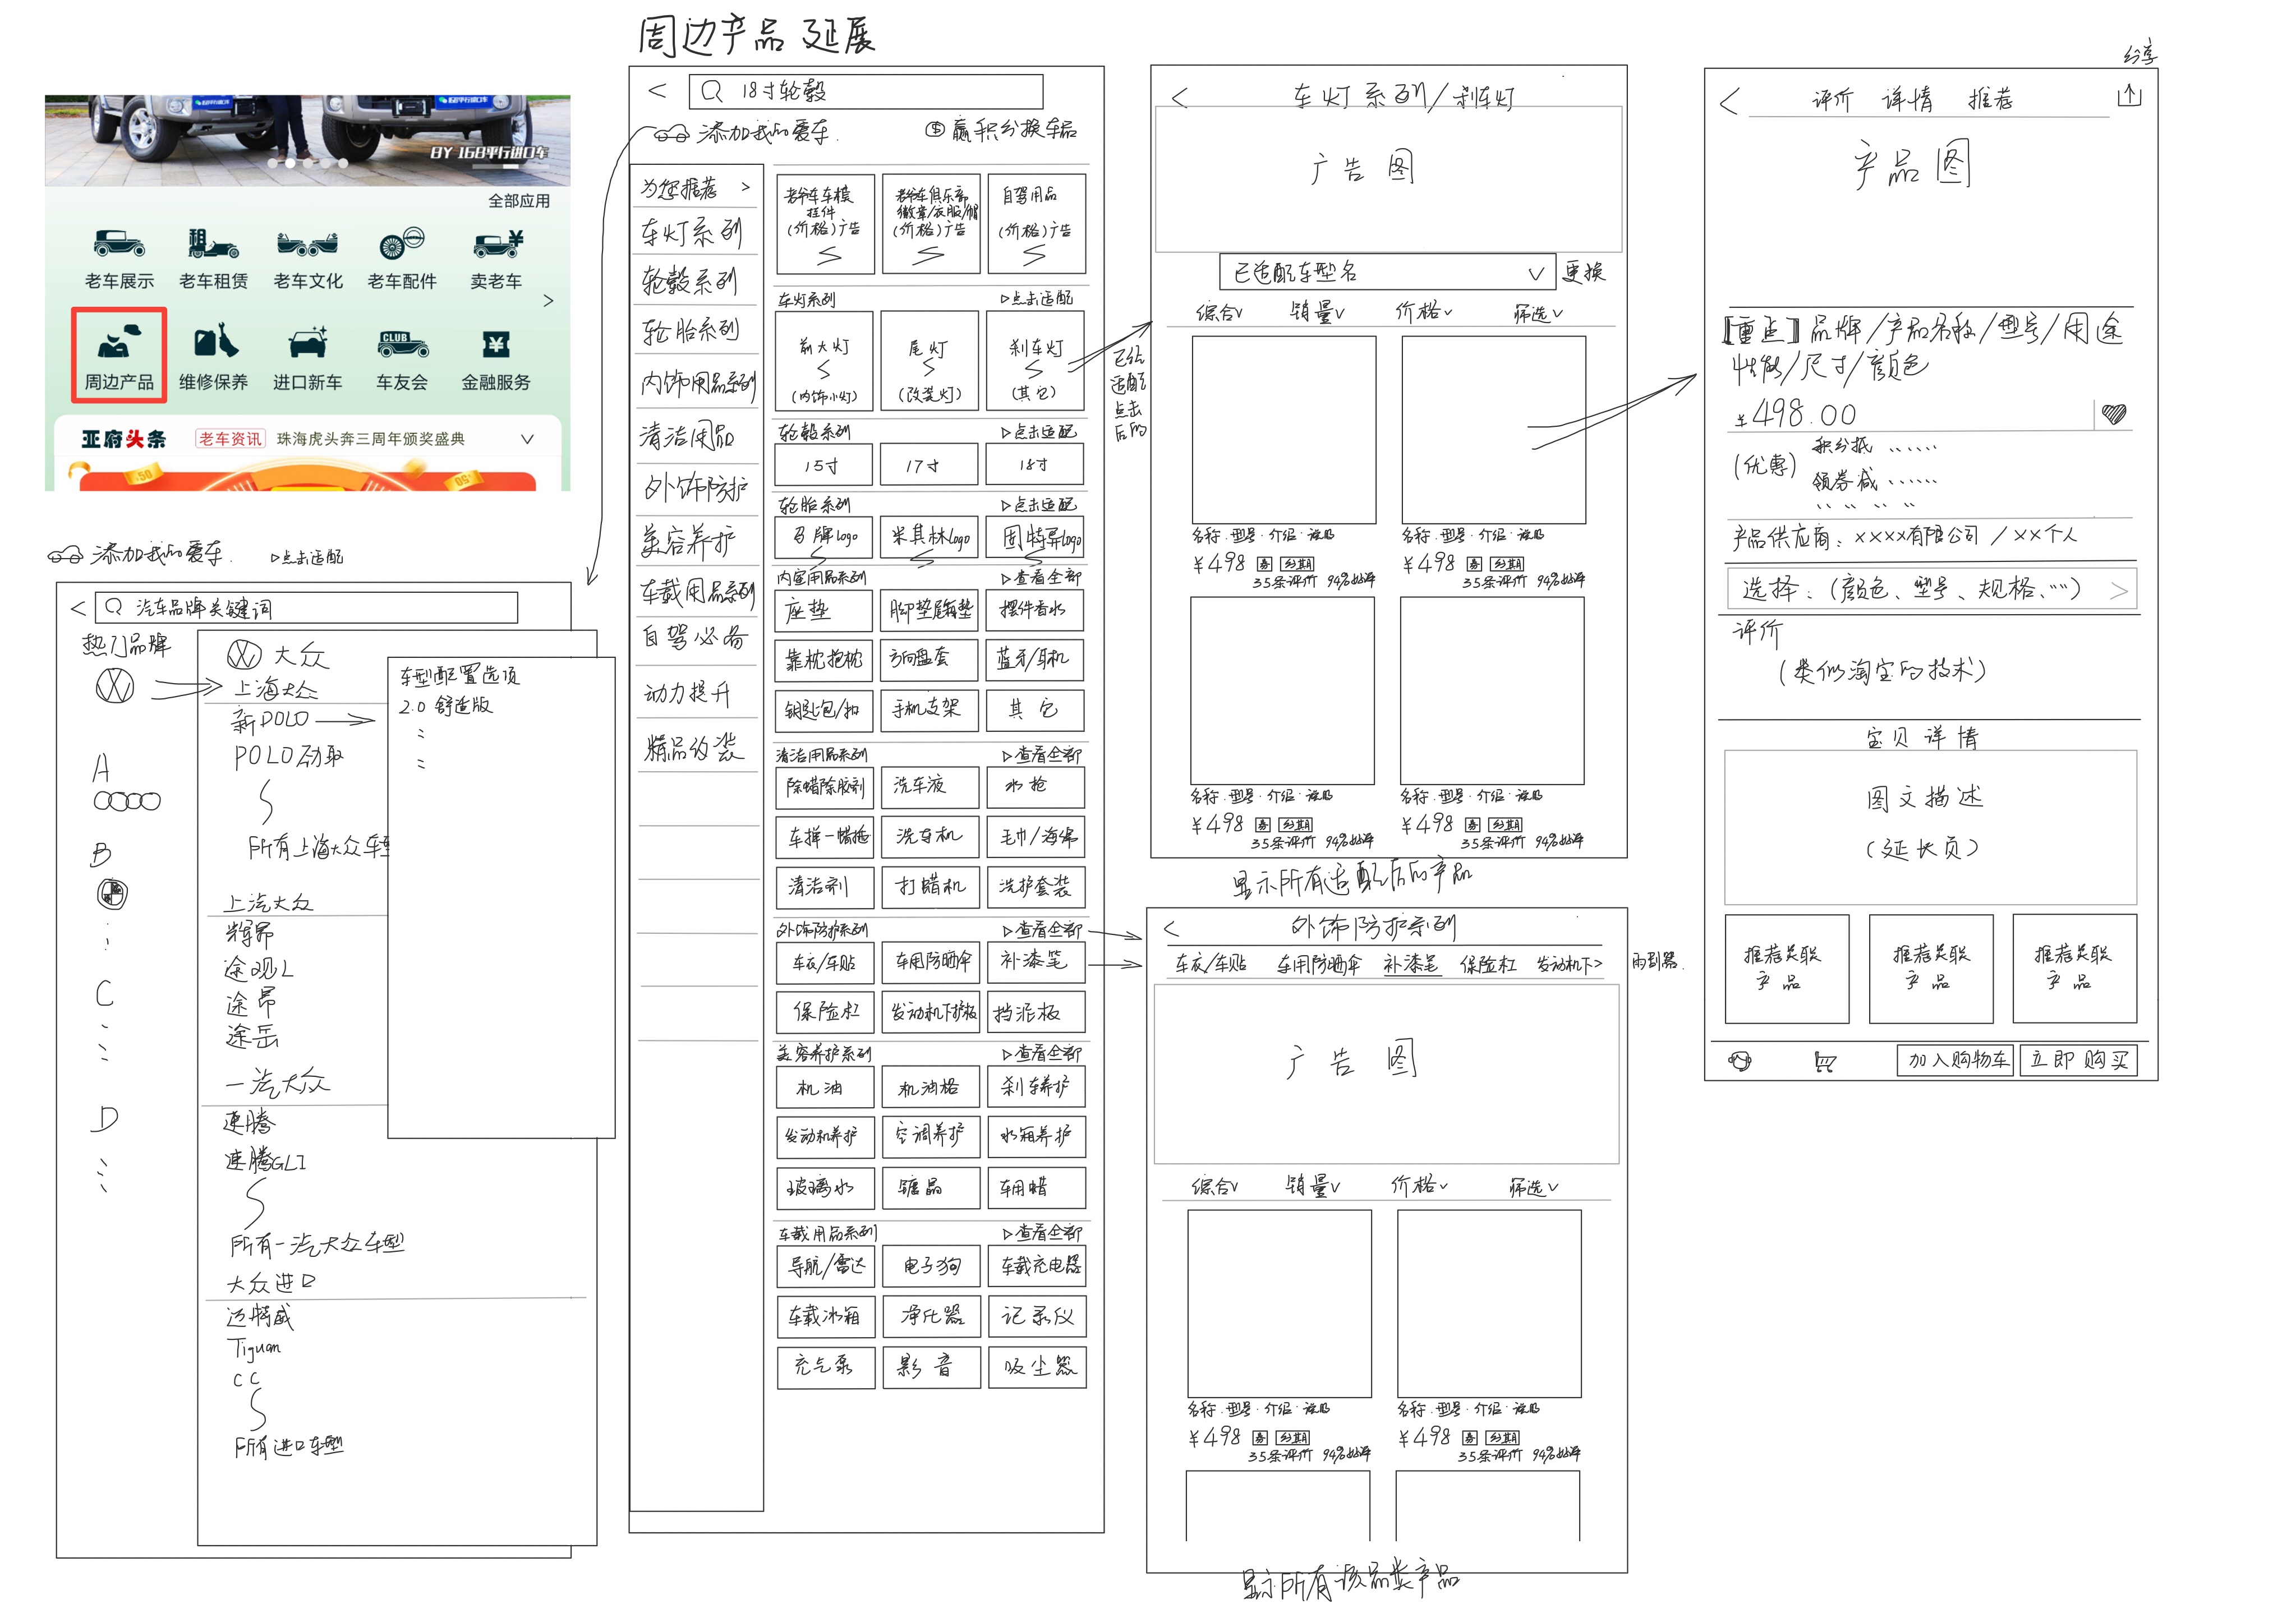 周边产品 延展
BY 168平行进口车
全部应用
老车展示 老车租赁 老车文化 老车配件 卖老车
周边产品 维修保养 进口新车 车友会 金融服务
亚府头条 老车资讯 珠海虎头奔三周年颁奖盛典
添加我的爱车. ▷点击适配
< 汽车品牌关键词
热门品牌
A
B
C
D
大众
上海大众
新POLO
POLO劲取
所有上海大众车型
上汽大众
辉昂
途观L
途昂
途岳
一汽大众
速腾
速腾GLI
所有一汽大众车型
大众进口
迈特威
Tiguan
CC
所有进口车型
车型配置选项
2.0 舒适版
< 18寸轮毂
添加我的爱车. 赢积分换车品
为您推荐 >
车灯系列
轮毂系列
轮胎系列
内饰用品系列
清洁用品
外饰防护
美容养护
车载用品系列
自驾必备
动力提升
精品改装
老爷车车模 老爷车俱乐部 自驾用品
挂件 徽章/衣服/帽
(价格)广告 (价格)广告 (价格)广告
车灯系列 ▷点击适配
前大灯 尾灯 刹车灯
(内饰小灯) (改装灯) (其它)
轮毂系列 ▷点击适配
15寸 17寸 18寸
轮胎系列 ▷点击适配
名牌logo 米其林logo 固特异logo
内室用品系列 ▷查看全部
座垫 脚垫尾箱垫 摆件香水
靠枕抱枕 方向盘套 蓝牙/耳机
钥匙包/扣 手机支架 其它
清洁用品系列 ▷查看全部
除蜡除胶剂 洗车液 水抢
车掸一蜡拖 洗车机 毛巾/海绵
清洁剂 打蜡机 洗护套装
外饰防护系列 ▷查看全部
车衣/车贴 车用防晒伞 补漆笔
保险杠 发动机下护板 挡泥板
美容养护系列 ▷查看全部
机油 机油格 刹车养护
发动机养护 空调养护 水箱养护
玻璃水 镀晶 车用蜡
车载用品系列 ▷查看全部
导航/雷达 电子狗 车载充电器
车载冰箱 净化器 记录仪
充气泵 影音 吸尘器
已经
适配
点击
后的
< 车灯系列/刹车灯
广告图
已适配车型名 更换
综合 销量 价格 筛选
名称·型号·介绍· 名称·型号·介绍·
¥498 券 分期 ¥498 券 分期
35条评价 94%好评 35条评价 94%好评
名称·型号·介绍· 名称·型号·介绍·
¥498 券 分期 ¥498 券 分期
35条评价 94%好评 35条评价 94%好评
显示所有适配后的产品
< 外饰防护系列
车衣/车贴 车用防晒伞 补漆笔 保险杠 发动机下> 雨刮器.
广告图
综合 销量 价格 筛选
名称·型号·介绍· 名称·型号·介绍·
¥498 券 分期 ¥498 券 分期
35条评价 94%好评 35条评价 94%好评
显示所有该品类产品
分享
< 评价 详情 推荐
产品图
【重点】品牌/产品名称/型号/用途
性能/尺寸/颜色
¥498.00
(优惠) 积分抵 ......
领券减 ......
产品供应商: xxxx有限公司 / xx个人
选择: (颜色、型号、规格、…) >
评价
(类似淘宝的技术)
宝贝详情
图文描述
(延长页)
推荐关联 推荐关联 推荐关联
产品 产品 产品
加入购物车 立即购买